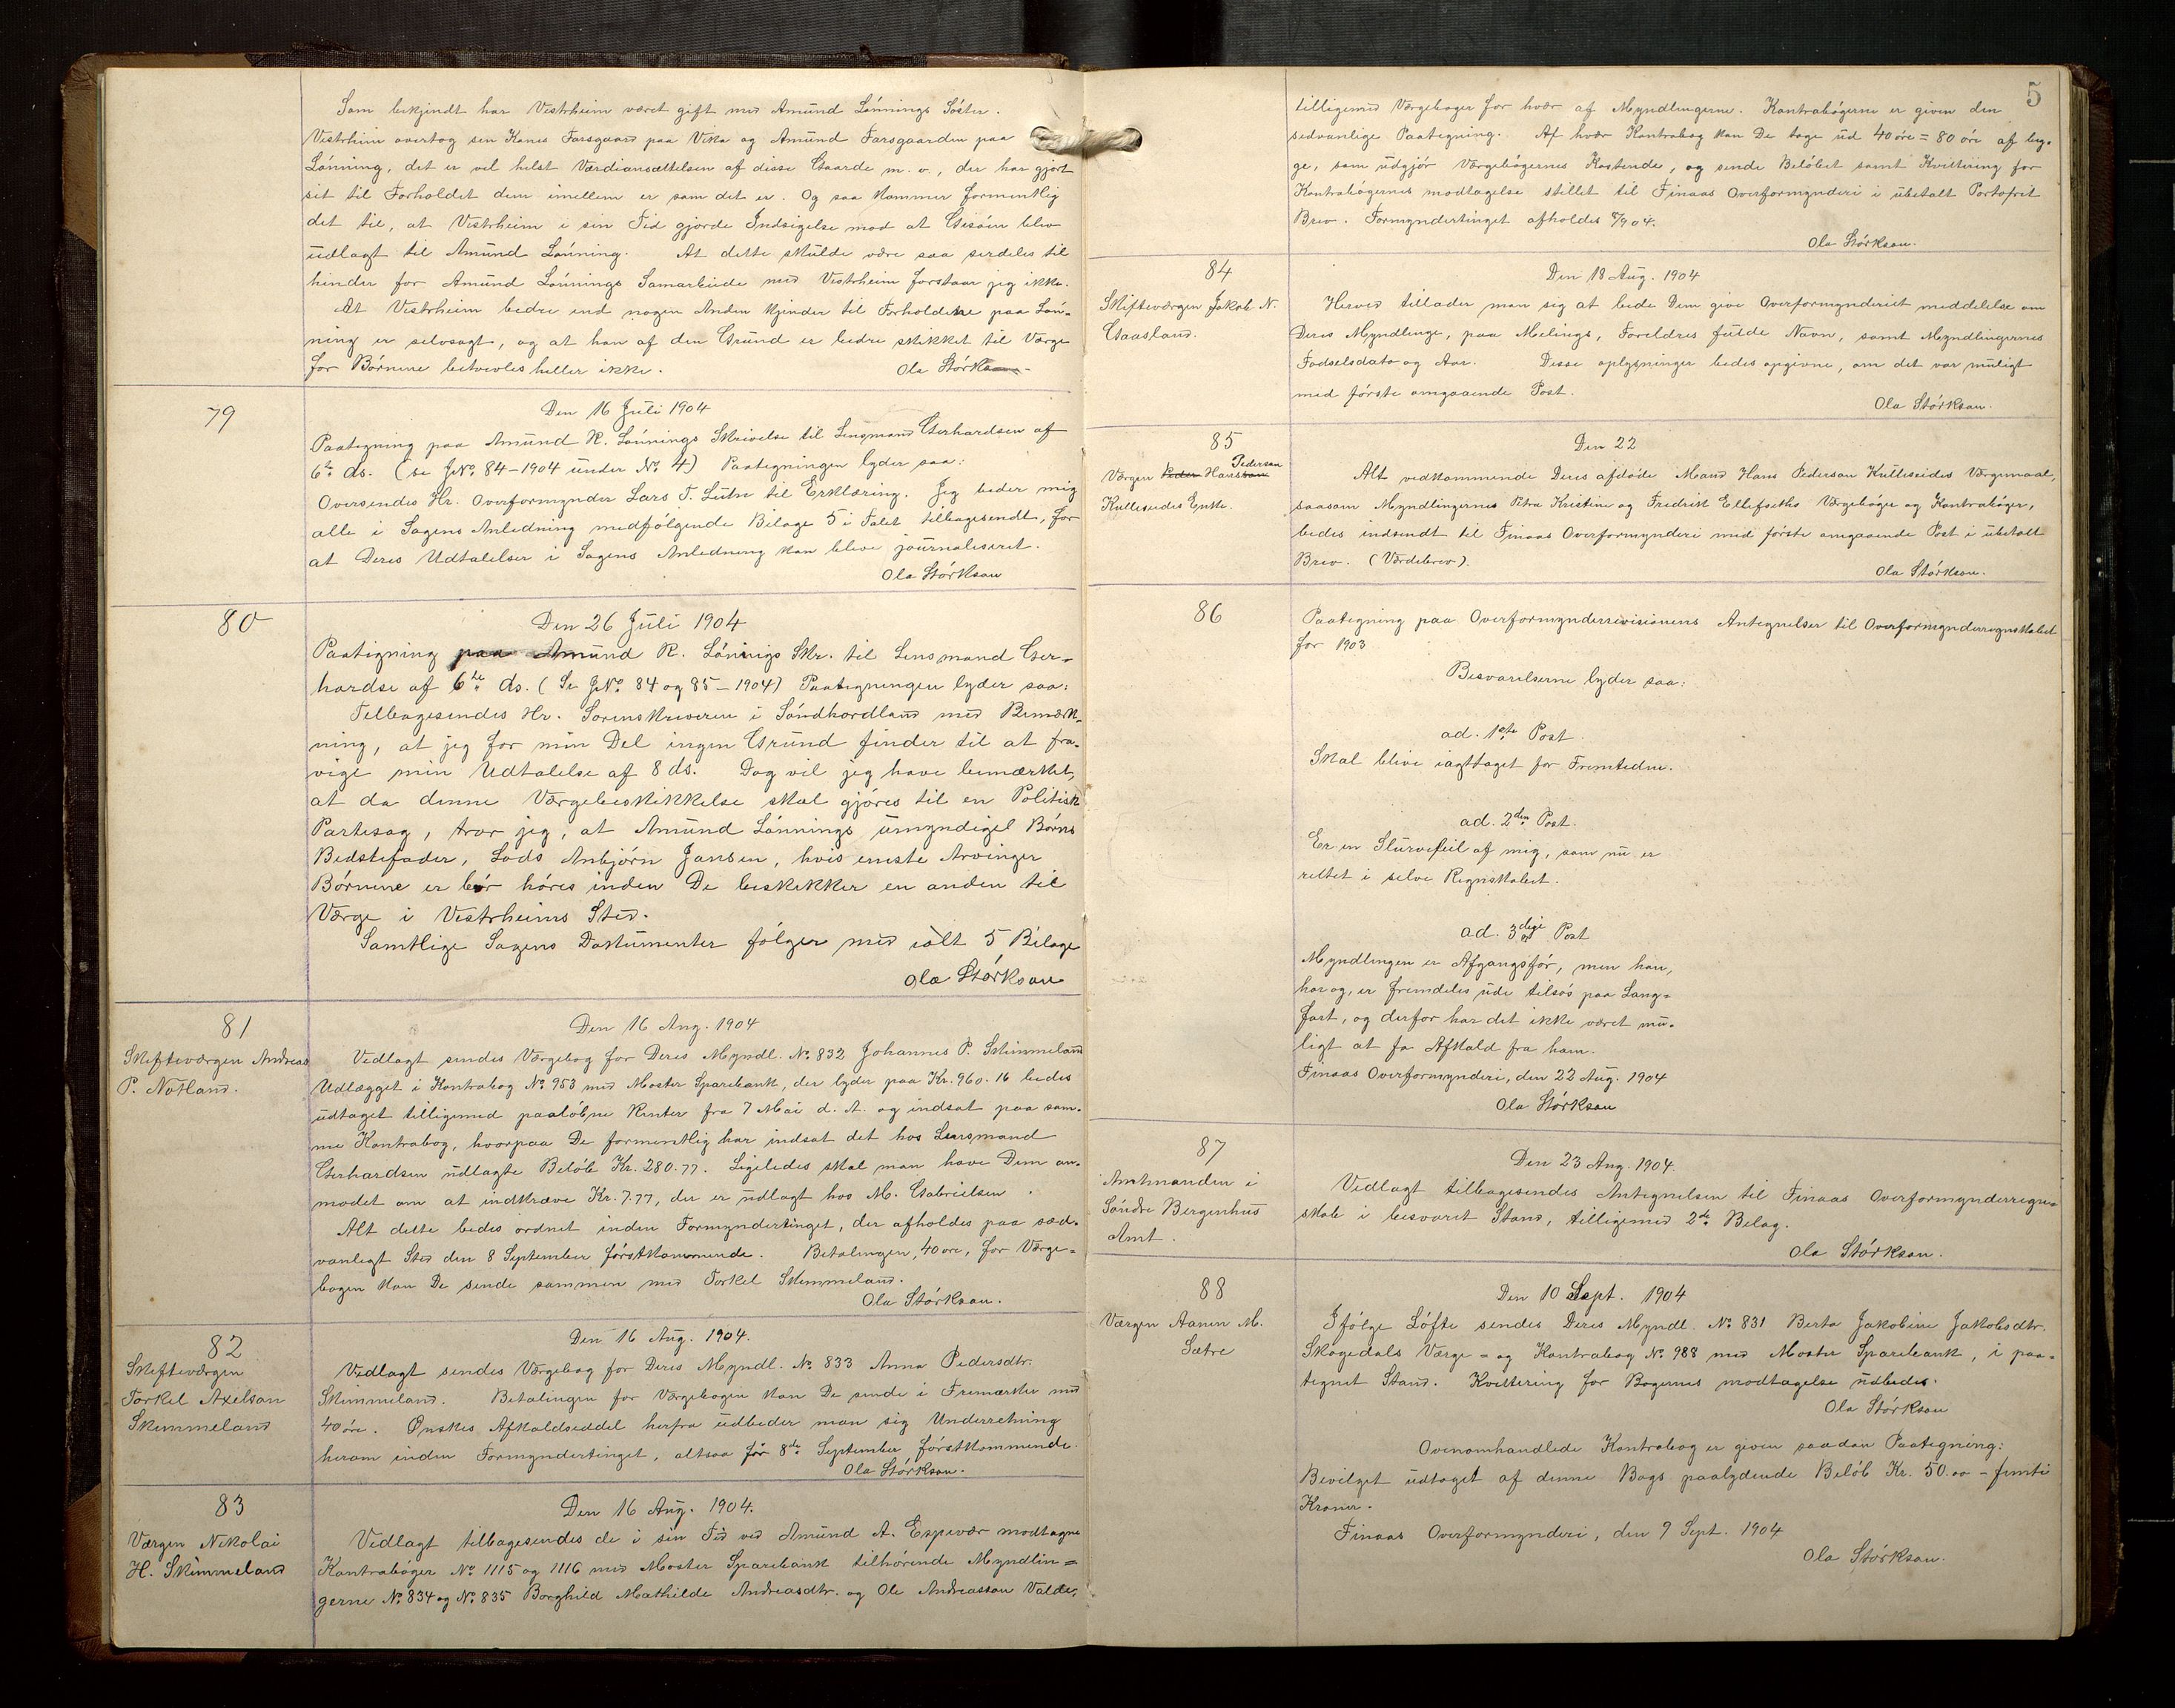 Som bekjendt har Vestrheim været gift med Amund Lønnings Søster.
Vestrheim overtog sin Kones Farsgaard paa Vika og Amund Farsgaarden paa
Lønning, det er vel helst Værdiansættelsen af disse Gaarde m. v., der har gjort
sit til Forholdet dem imellem er som det er. Og saa kommer formentlig
det til, at Vestrheim i sin Tid gjorde Indsigelse mod at Geisøen blev
udlagt til Amund Lønning. At dette skulde være saa serdeles til
hinder for Amund Lønnings Samarbeide med Vestrheim forstaar jeg ikke.
At Vestrheim bedre end nogen Anden kjender til Forholdene paa Løn-
ning er selvsagt, og at han af den Grund er bedre skikket til Værge
for Børnene betvivles heller ikke.
Ola Størkson
79
Den 16 Juli 1904
Paategning paa Amund R. Lønnings Skrivelse til Lensmand Gerhardsen af
6te ds. (se JNo. 84-1904 under No. 4) Paategningen lyder saa:
Oversendes Hr. Overformynder Lars T. Lutn til Erklæring. Jeg beder mig
alle i Sagens Anledning medfølgende Bilage 5 i Talet tilbagesendt, for
at Deres Udtalelser i Sagens Anledning kan blive journaliseret.
Ola Størkson
80
Den 26 Juli 1904
Paategning paa Amund R. Lønnigs Skr. til Lensmand Ger-
hardse af 6te ds. (Se JNo. 84 og 85-1904) Paategningen lyder saa:
Tilbagesendes Hr. Sorenskriveren i Søndhordland med Bemærk-
ning, at jeg for min Del ingen Grund finder til at fra-
vige min Udtalelse af 8 ds. Dog vil jeg have bemærket,
at da denne Værgebeskikkelse skal gjøres til en Politisk
Partisag, tror jeg, at Amund Lønnings umyndigel Børns
Bedstefader, Lods Anbjørn Jansen, hvis eneste Arvinger
Børnene er bør høres inden De beskikker en anden til
Værge i Vestrheims Sted.
Samtlige Sagens Dokumenter følger med ialt 5 Bilage
Ola Størkson
81
Skifteværgen Andreas
P. Notland.
Den 16 Aug. 1904
Vedlagt sendes Værgebog for Deres Myndl. No. 832 Johannes P. Skimmeland
Udlægget i Kontrabog No. 953 med Moster Sparebank, der lyder paa Kr. 960.16 bedes
udtaget tilligemed paaløbne Renter fra 7 Mai d. A. og indsat paa sam-
me Kontrabog, hvorpaa De formentlig har indsat det hos Lensmand
Gerhardsen udlagte Beløb Kr. 280.77. Ligeledes skal man have Dem an-
modet om at indkræve Kr. 7.77, der er udlagt hos M. Gabrielsen.
Alt dette bedes ordnet inden Formyndertinget, der afholdes paa sæd-
vanligt Sted den 8 September førstkommende. Betalingen, 40 øre, for Værge-
bogen kan De sende sammen med Torkel Skimmeland.
Ola Størkson.
82
Skifteværgen
Torkel Axelson
Skimmeland
Den 16 Aug. 1904.
Vedlagt sendes Værgebog for Deres Myndl. No. 833 Anna Pedersdtr.
Skimmeland. Betalingen for Værgebogen kan De sende i Frimærker med
40 øre. Ønskes Afkaldseddel herfra udbeder man sig Underretning
herom inden Formyndertinget, altsaa før 8de September førstkommende.
Ola Størkson.
83
Værgen Nikolai
H. Skimmeland
Den 16 Aug. 1904.
Vedlagt tilbagesendes de i sin Tid ved Amund A. Espevær modtagne
Kontrabøger No. 1115 og 1116 med Moster Sparebank tilhørende Myndlin-
gerne No. 834 og No. 835 Borghild Mathilde Andreasdtr. og Ole Andreasson Valde,
5
tilligemed Værgebøger for hver af Myndlingerne. Kontrabøgerne er given den
sedvanlige Paategning. Af hver Kontrabog kan De tage ud 40 øre = 80 øre af beg-
ge, som udgjør Værgebøgernes Kostende, og sende Beløbet samt Kvittering for
Kontrabøgernes modtagelse stillet til Finaas Overformynderi i ubetalt Portofrit
Brev. Formyndertinget afholdes 8/9 04.
Ola Størkson.
84
Skifteværgen Jakob N.
Gaasland.
Den 18 Aug. 1904
Herved tillader man sig at bede Dem give Overformynderiet meddelelse om
Deres Myndlinge, paa Melings, Foreldres fulde Navn, samt Myndlingernes
Fødselsdato og Aar. Disse oplysninger bedes opgivne, om det var muligt
med første omgaaende Post.
Ola Størkson.
85
Værgen Peder Hansson Pedersen
Kulleseides Enke.
Den 22
Alt vedkommende Deres afdøde Mand Hans Pederson Kulleseides Værgemaal,
saasom Myndlingernes Petra Kristine og Fredrik Elleføeths Værgebøger og Kontrabøger,
bedes indsendt til Finaas Overformynderi med første omgaaende Post i ubetalt
Brev. (Værdibrev).
Ola Størkson.
86
Paategning paa Overformynderrevisionens Antegnelser til Overformynderregnskabet
for 1903
Besvarelserne lyder saa:
ad. 1ste Post.
Skal blive iagttaget for Fremtiden.
ad. 2den Post.
Er en Slurvefeil af mig, som nu er
rettet i selve Regnskabet.
ad. 3dige Post
Myndlingen er Afgangsfør, men han,
har og, er fremdeles ude tilsøs paa Lang-
fart, og derfor har det ikke været mu-
ligt at fa Afkald fra ham.
Finaas Overformynderi, den 22 Aug. 1904
Ola Størkson
87
Amtmanden i
Søndre Bergenhus
Amt.
Den 23 Aug. 1904.
Vedlagt tilbagesendes Antegnelsen til Finaas Overformynderregn-
skab i besvaret Stand, tilligemed 2de Belag.
Ola Størkson.
88
Værgen Aanen M.
Sætre
Den 10 Sept. 1904
Ifølge Løfte sendes Deres Myndl. No. 831 Berta Jakobine Jakobsdtr.
Skogedals Værge- og Kontrabog No. 988 med Moster Sparebank, i paa-
tegnet Stand. Kvittering for Bøgernes modtagelse udbedes.
Ola Størkson
Ovenomhandlede Kontrabog er given saadan Paategning:
Bevilget udtaget af denne Bogs paalydende Beløb Kr. 50.00 - femti
Kroner.
Finaas Overformynderi, den 9 Sept. 1904
Ola Størkson.